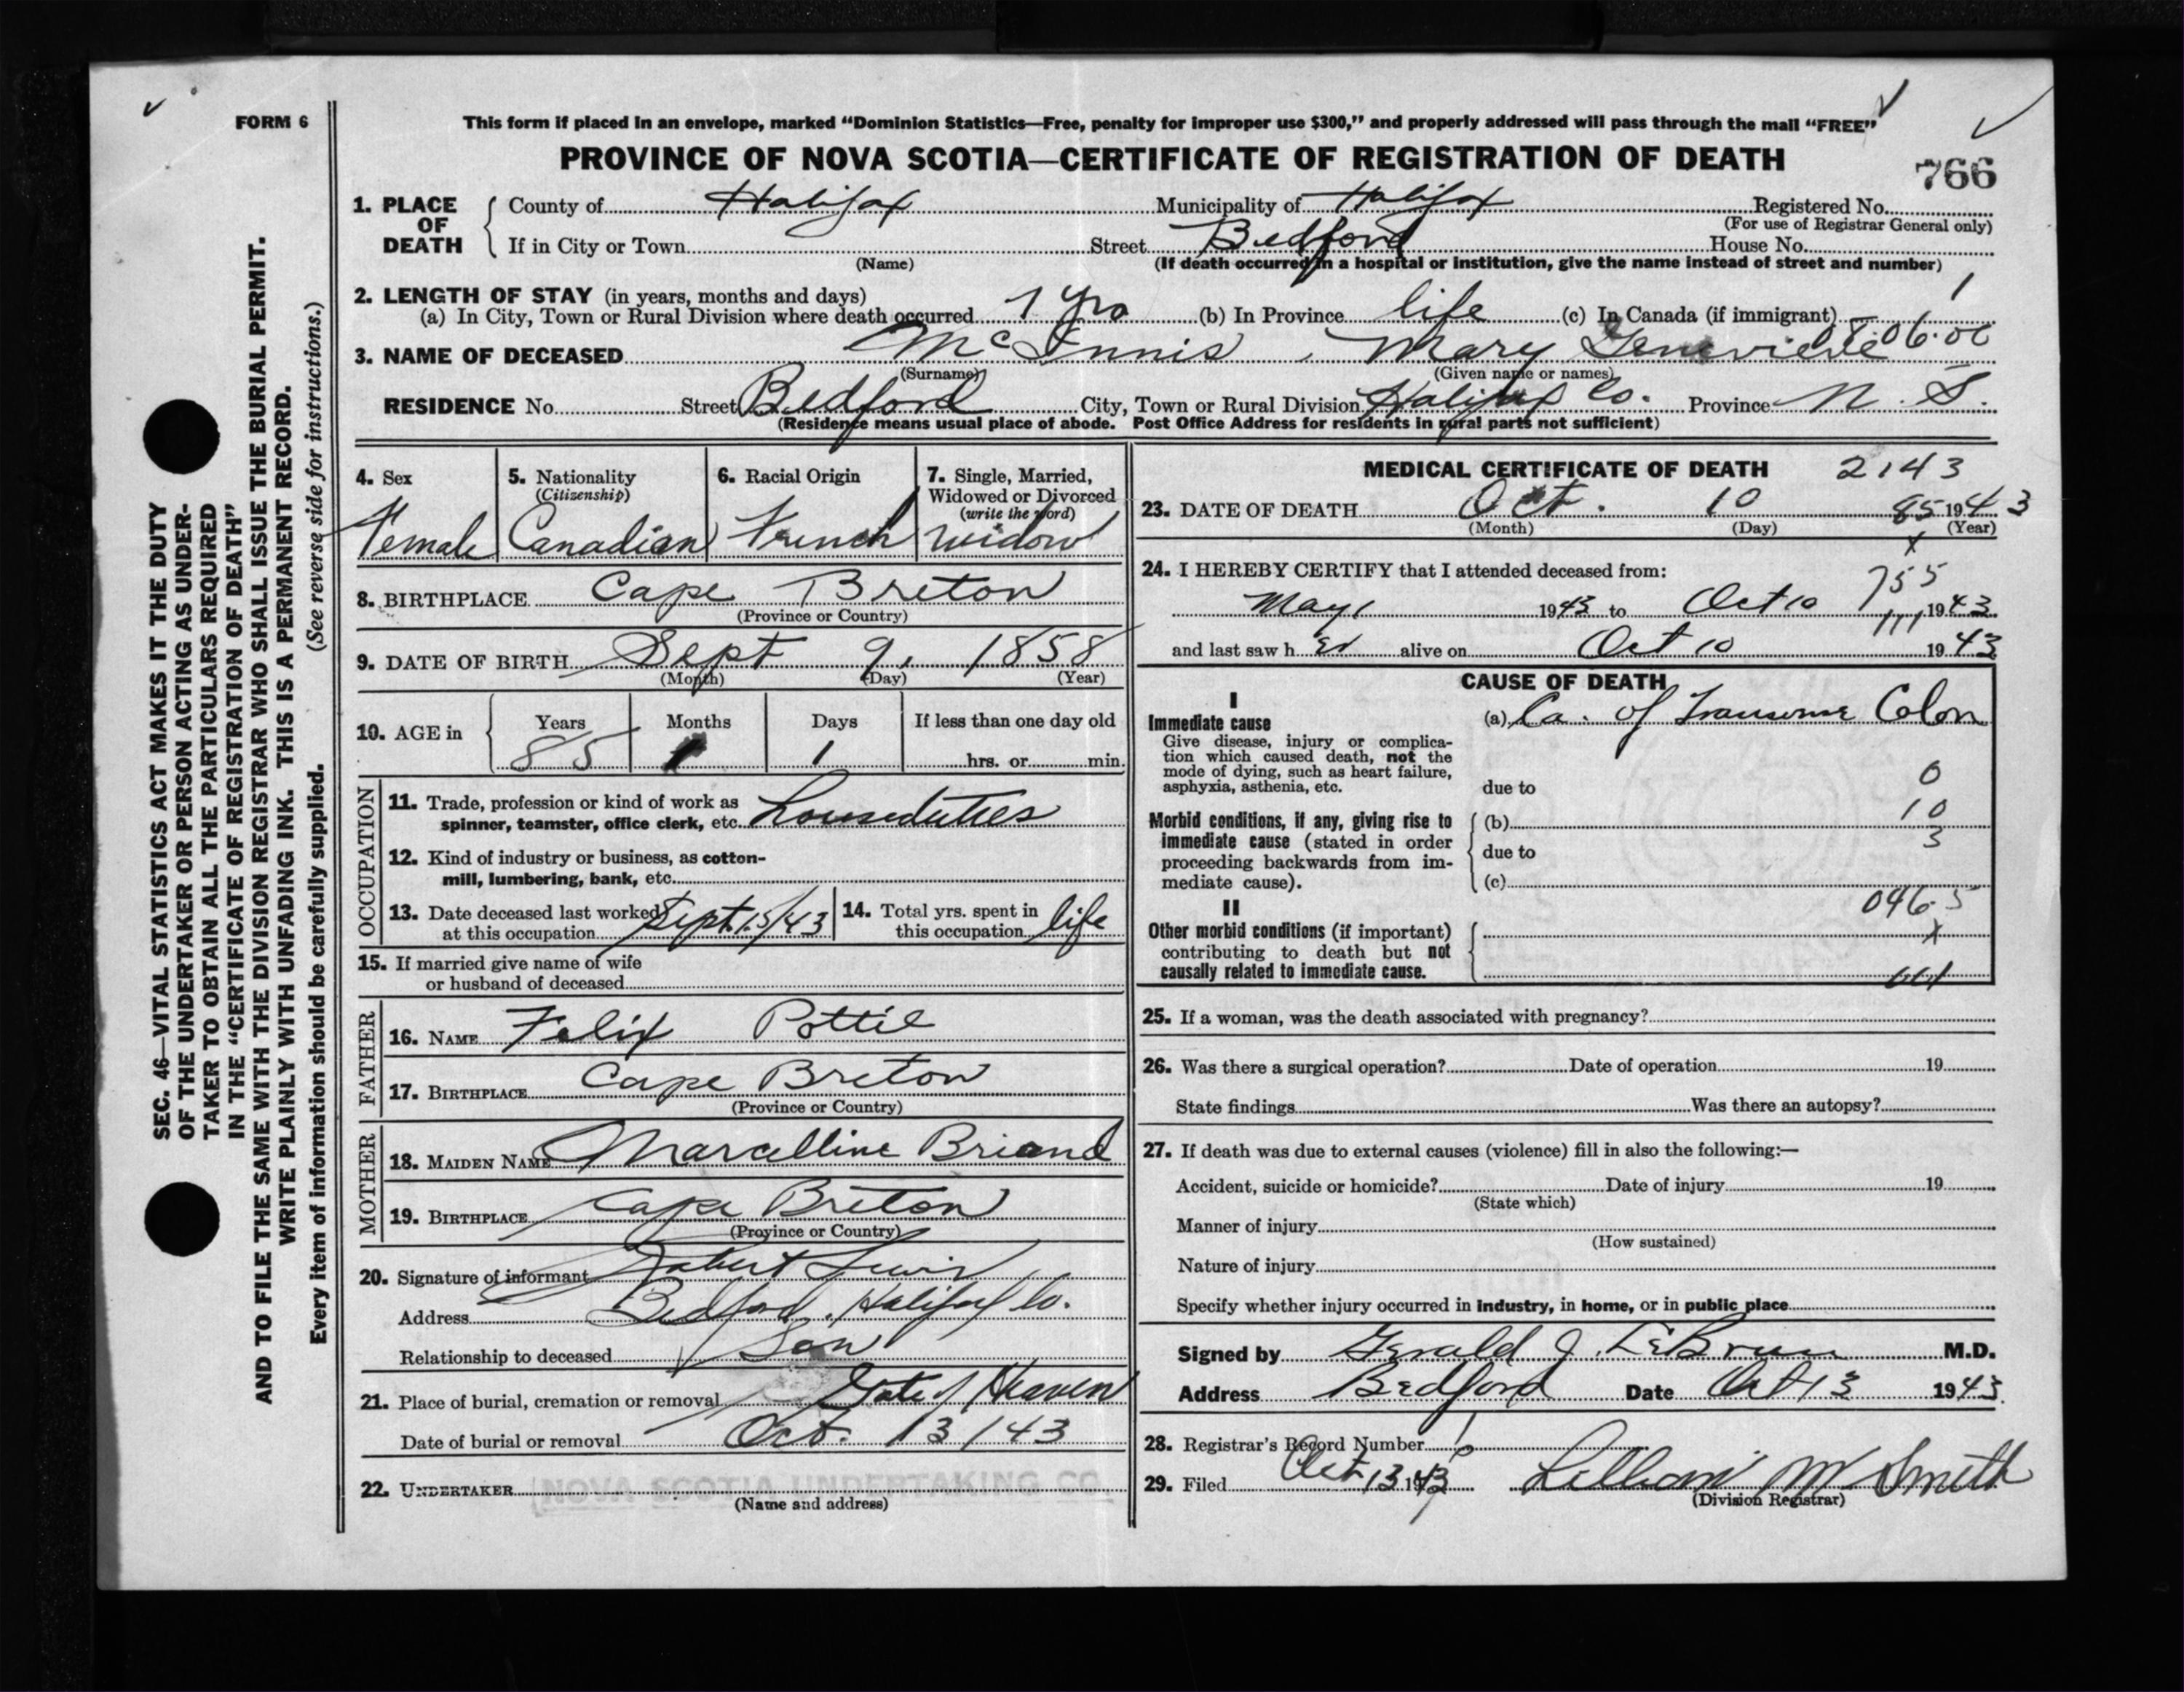 FORM 6
This form if placed in an envelope, marked “Dominion Statistics—Free, penalty for improper use $300,” and properly addressed will pass through the mail “FREE”
PROVINCE OF NOVA SCOTIA—CERTIFICATE OF REGISTRATION OF DEATH
766
1. PLACE OF DEATH
County of Halifax Municipality of Halifax Registered No.
(For use of Registrar General only)
If in City or Town Street Bedford House No.
(Name) (If death occurred in a hospital or institution, give the name instead of street and number)
2. LENGTH OF STAY (in years, months and days)
(a) In City, Town or Rural Division where death occurred 7 yrs (b) In Province life (c) In Canada (if immigrant)
3. NAME OF DECEASED McInnis, Mary Genevieve 06.00
(Surname) (Given name or names)
RESIDENCE No. Street Bedford City, Town or Rural Division Halifax Co. Province N. S.
(Residence means usual place of abode. Post Office Address for residents in rural parts not sufficient)
4. Sex
Female
5. Nationality
(Citizenship)
Canadian
6. Racial Origin
French
7. Single, Married,
Widowed or Divorced
(write the word)
Widow
8. BIRTHPLACE Cape Breton
(Province or Country)
9. DATE OF BIRTH Sept 9, 1858
(Month) (Day) (Year)
10. AGE in Years Months Days If less than one day old
85 1 1 hrs. or min.
OCCUPATION
11. Trade, profession or kind of work as
spinner, teamster, office clerk, etc. houseduties
12. Kind of industry or business, as cotton-
mill, lumbering, bank, etc.
13. Date deceased last worked
at this occupation Sept. 15/43
14. Total yrs. spent in
this occupation life
15. If married give name of wife
or husband of deceased
FATHER
16. NAME Felix Pottie
17. BIRTHPLACE Cape Breton
(Province or Country)
MOTHER
18. MAIDEN NAME Marcelline Briand
19. BIRTHPLACE Cape Breton
(Province or Country)
20. Signature of informant Robert Lewis
Address Bedford, Halifax Co.
Relationship to deceased Son
21. Place of burial, cremation or removal Gate of Heaven
Date of burial or removal Oct. 13/43
22. UNDERTAKER NOVA SCOTIA UNDERTAKING CO.
(Name and address)
MEDICAL CERTIFICATE OF DEATH 2143
23. DATE OF DEATH Oct. 10 85 1943
(Month) (Day) (Year)
x
24. I HEREBY CERTIFY that I attended deceased from:
755
May 1 1943 to Oct 10 111 1943
and last saw h er alive on Oct 10 1943
CAUSE OF DEATH
I
Immediate cause
(a) Ca. of Transverse Colon
Give disease, injury or complica-
tion which caused death, not the
mode of dying, such as heart failure,
asphyxia, asthenia, etc.
0
due to
10
Morbid conditions, if any, giving rise to
immediate cause (stated in order
proceeding backwards from im-
mediate cause).
(b)
3
due to
(c)
046.5
II
Other morbid conditions (if important)
contributing to death but not
causally related to immediate cause.
x
25. If a woman, was the death associated with pregnancy?
26. Was there a surgical operation? Date of operation 19
State findings Was there an autopsy?
27. If death was due to external causes (violence) fill in also the following:—
Accident, suicide or homicide? Date of injury 19
(State which)
Manner of injury
(How sustained)
Nature of injury
Specify whether injury occurred in industry, in home, or in public place
Signed by Gerald J. LeBrun M.D.
Address Bedford Date Oct 13 1943
28. Registrar's Record Number
29. Filed Oct 13 1943 Lillian M Smith
(Division Registrar)
SEC. 46—VITAL STATISTICS ACT MAKES IT THE DUTY
OF THE UNDERTAKER OR PERSON ACTING AS UNDER-
TAKER TO OBTAIN ALL THE PARTICULARS REQUIRED
IN THE “CERTIFICATE OF REGISTRATION OF DEATH”
AND TO FILE THE SAME WITH THE DIVISION REGISTRAR WHO SHALL ISSUE THE BURIAL PERMIT.
WRITE PLAINLY WITH UNFADING INK. THIS IS A PERMANENT RECORD.
Every item of information should be carefully supplied. (See reverse side for instructions.)